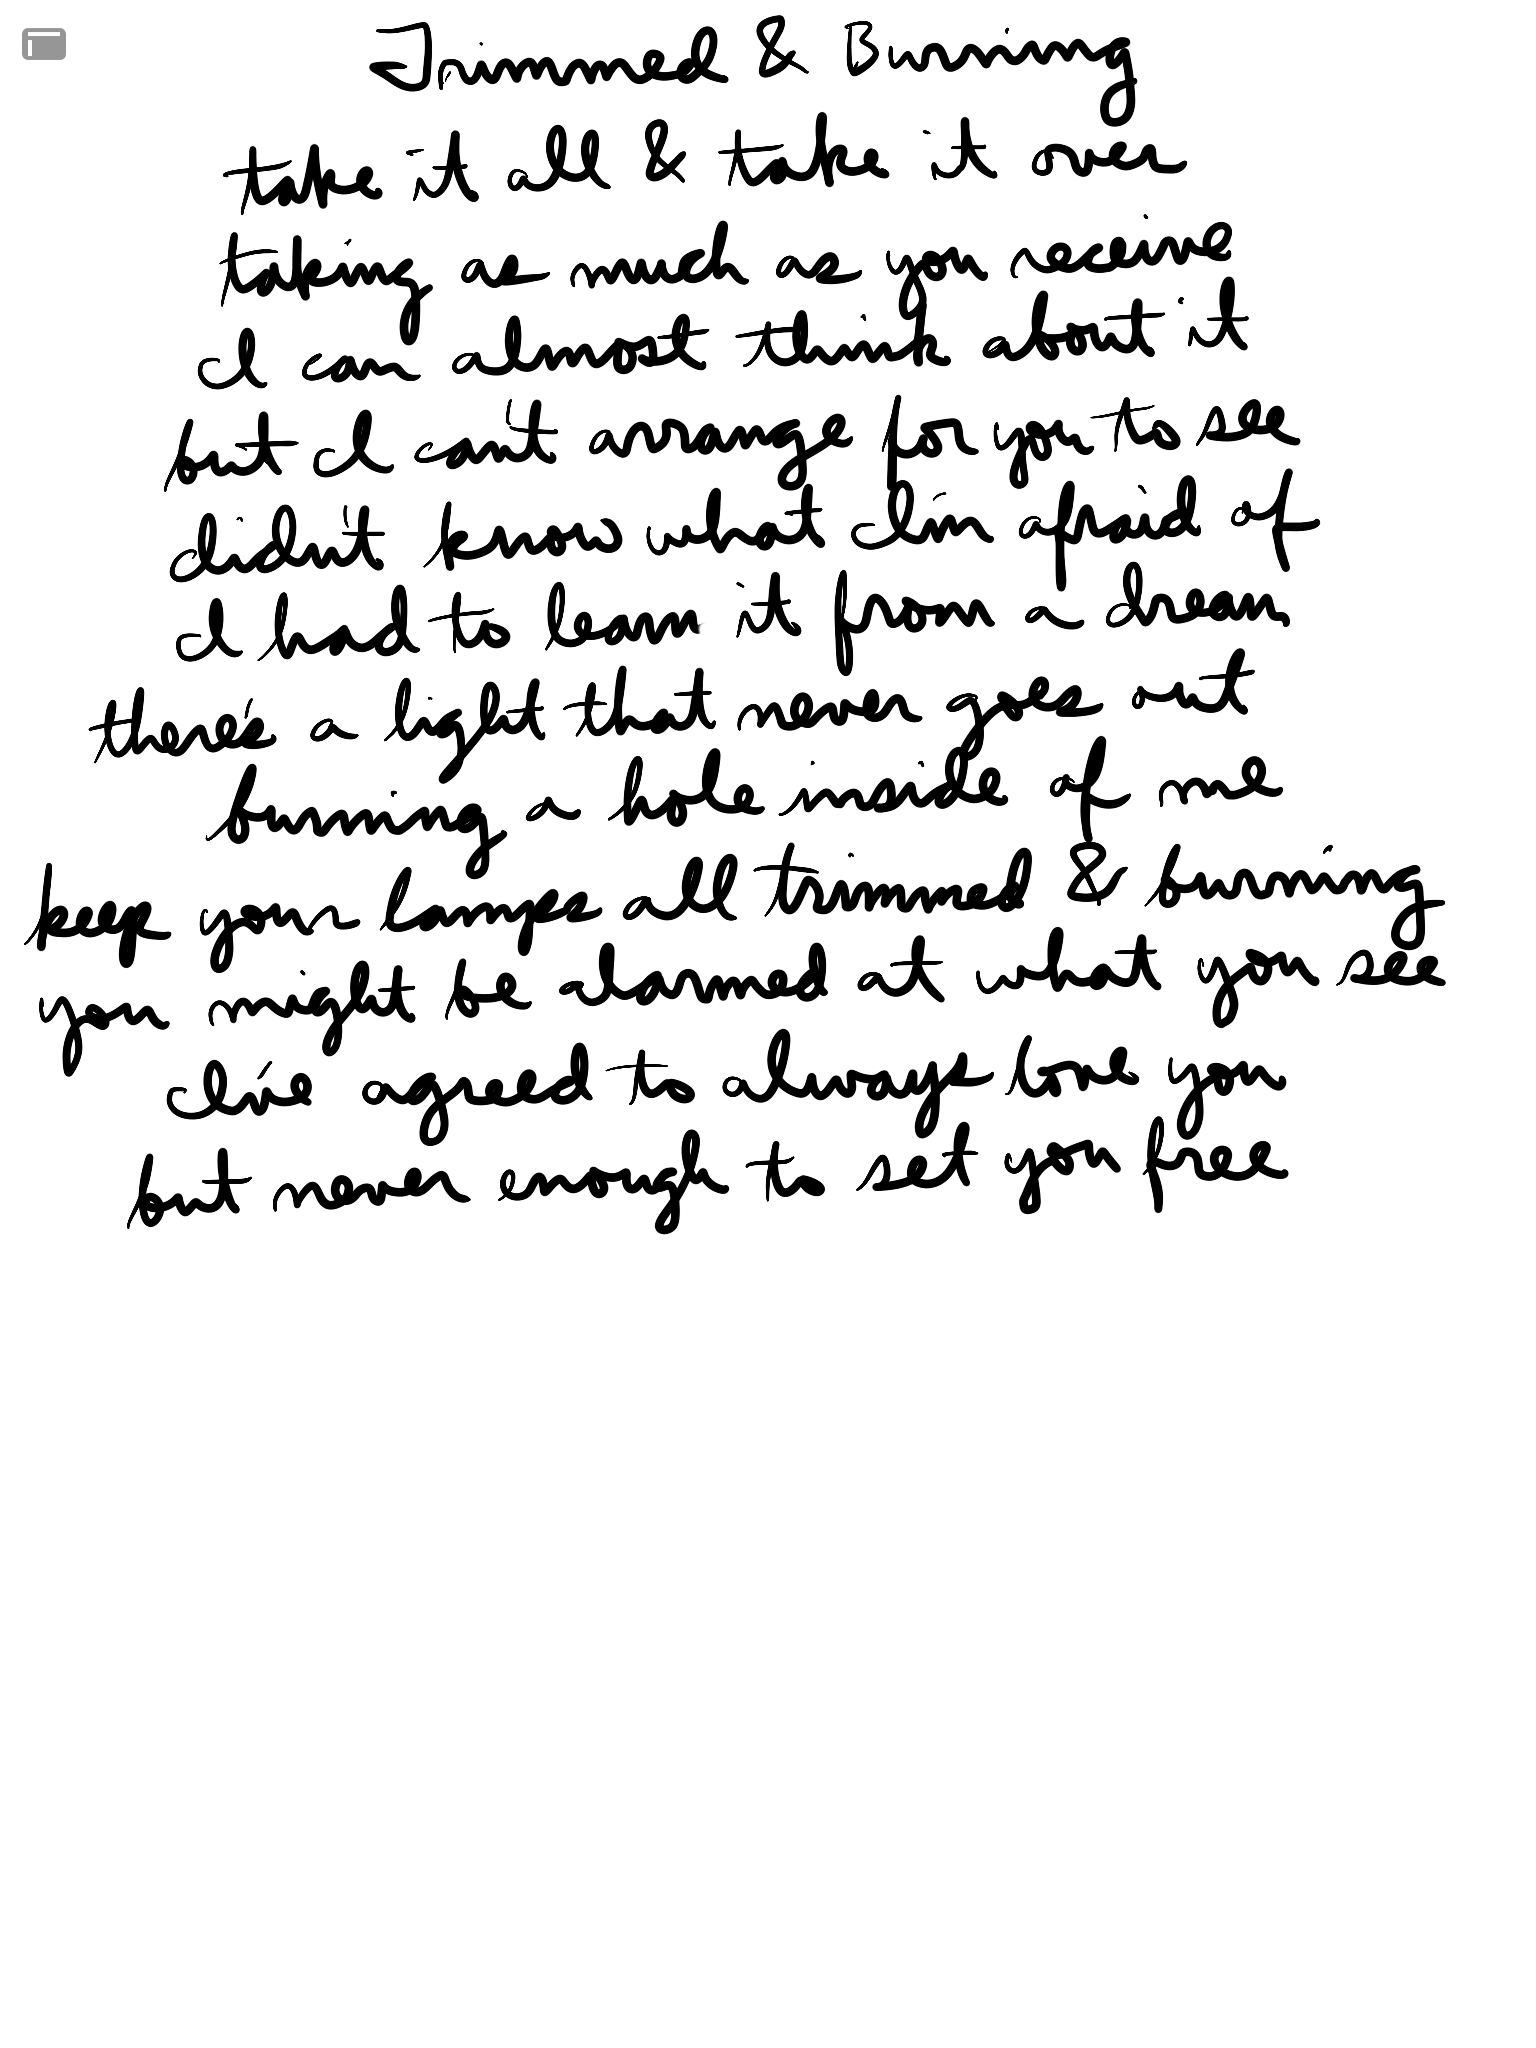 Trimmed & Burning
take it all & take it over
taking as much as you receive
I can almost think about it
but I can't arrange for you to see
didn't know what I'm afraid of
I had to learn it from a dream
there's a light that never goes out
burning a hole inside of me
keep your lamps all trimmed & burning
you might be alarmed at what you see
I've agreed to always love you
but never enough to set you free